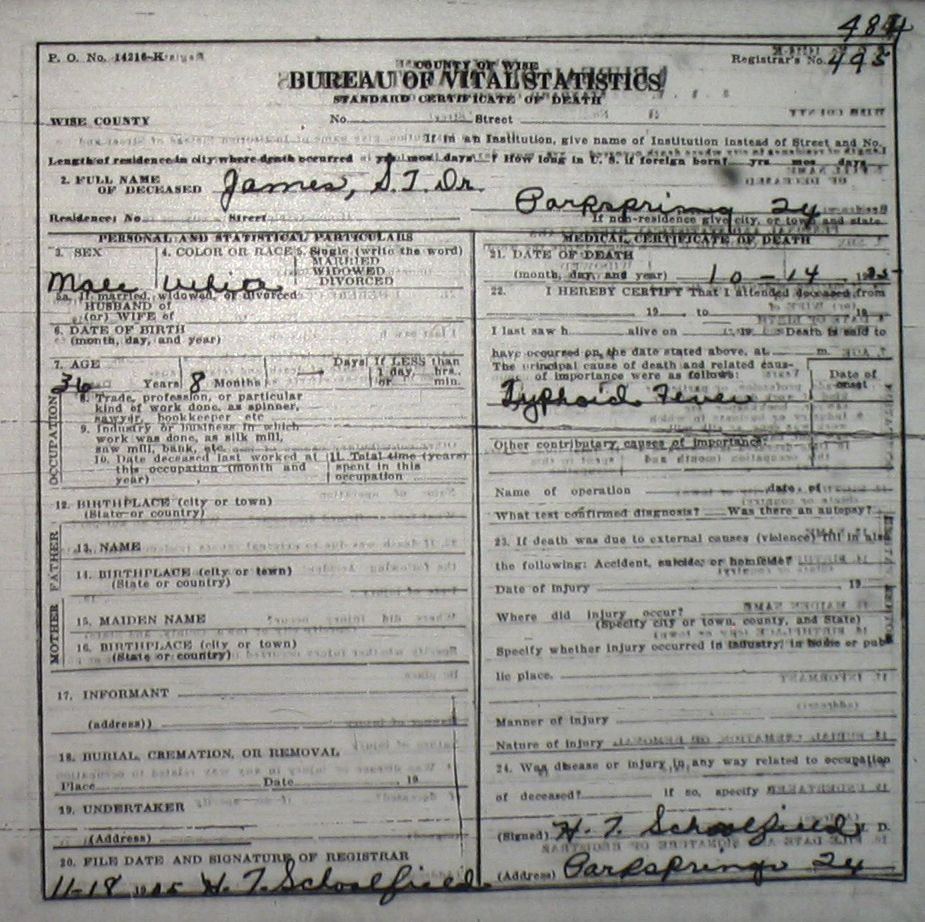 484
P. O. No. 14216-K
Registrar's No. 495
COUNTY OF WISE
BUREAU OF VITAL STATISTICS
STANDARD CERTIFICATE OF DEATH
WISE COUNTY No. Street
If in an Institution, give name of Institution instead of Street and No.
Length of residence in city where death occurred yrs. mos. days How long in U. S. if foreign born? yrs. mos. days
2. FULL NAME OF DECEASED James, S. T. Dr.
Parkspring
Residence; No. Street
If non-residence give city, or town and state
PERSONAL AND STATISTICAL PARTICULARS
3. SEX 4. COLOR OR RACE 5. Single (write the word)
MARRIED
WIDOWED
DIVORCED
Male White
5a. If married, widowed, or divorced
HUSBAND of
(or) WIFE of
6. DATE OF BIRTH
(month, day, and year)
7. AGE Days If LESS than
1 day, hrs.
36 Years 8 Months — or min.
OCCUPATION
8. Trade, profession, or particular
kind of work done, as spinner,
sawyer, bookkeeper etc
9. Industry or business in which
work was done, as silk mill,
saw mill, bank, etc.
10. Date deceased last worked at 11. Total time (years)
this occupation (month and spent in this
year) occupation
12. BIRTHPLACE (city or town)
(State or country)
FATHER
13. NAME
14. BIRTHPLACE (city or town)
(State or country)
MOTHER
15. MAIDEN NAME
16. BIRTHPLACE (city or town)
(State or country)
17. INFORMANT
(address))
18. BURIAL, CREMATION, OR REMOVAL
Place Date 19
19. UNDERTAKER
(Address)
20. FILE DATE AND SIGNATURE OF REGISTRAR
11-18 H. T. Schoolfield
MEDICAL CERTIFICATE OF DEATH
21. DATE OF DEATH
(month, day, and year) 10-14
22. I HEREBY CERTIFY That I attended deceased from
19 to 19
I last saw h alive on 19 Death is said to
have occurred on the date stated above, at m.
The principal cause of death and related causes
of importance were as follows: Date of
onset
Typhoid Fever
Other contributary causes of importance:
Name of operation date of
What test confirmed diagnosis? Was there an autopsy?
23. If death was due to external causes (violence) fill in also
the following: Accident, suicide, or homicide?
Date of injury 19
Where did injury occur?
(Specify city or town, county, and State)
Specify whether injury occurred in industry, in home or pub
lic place.
Manner of injury
Nature of injury
24. Was disease or injury in any way related to occupation
of deceased? If so, specify
(Signed) H. T. Schoolfield M. D.
(Address) Parksprings